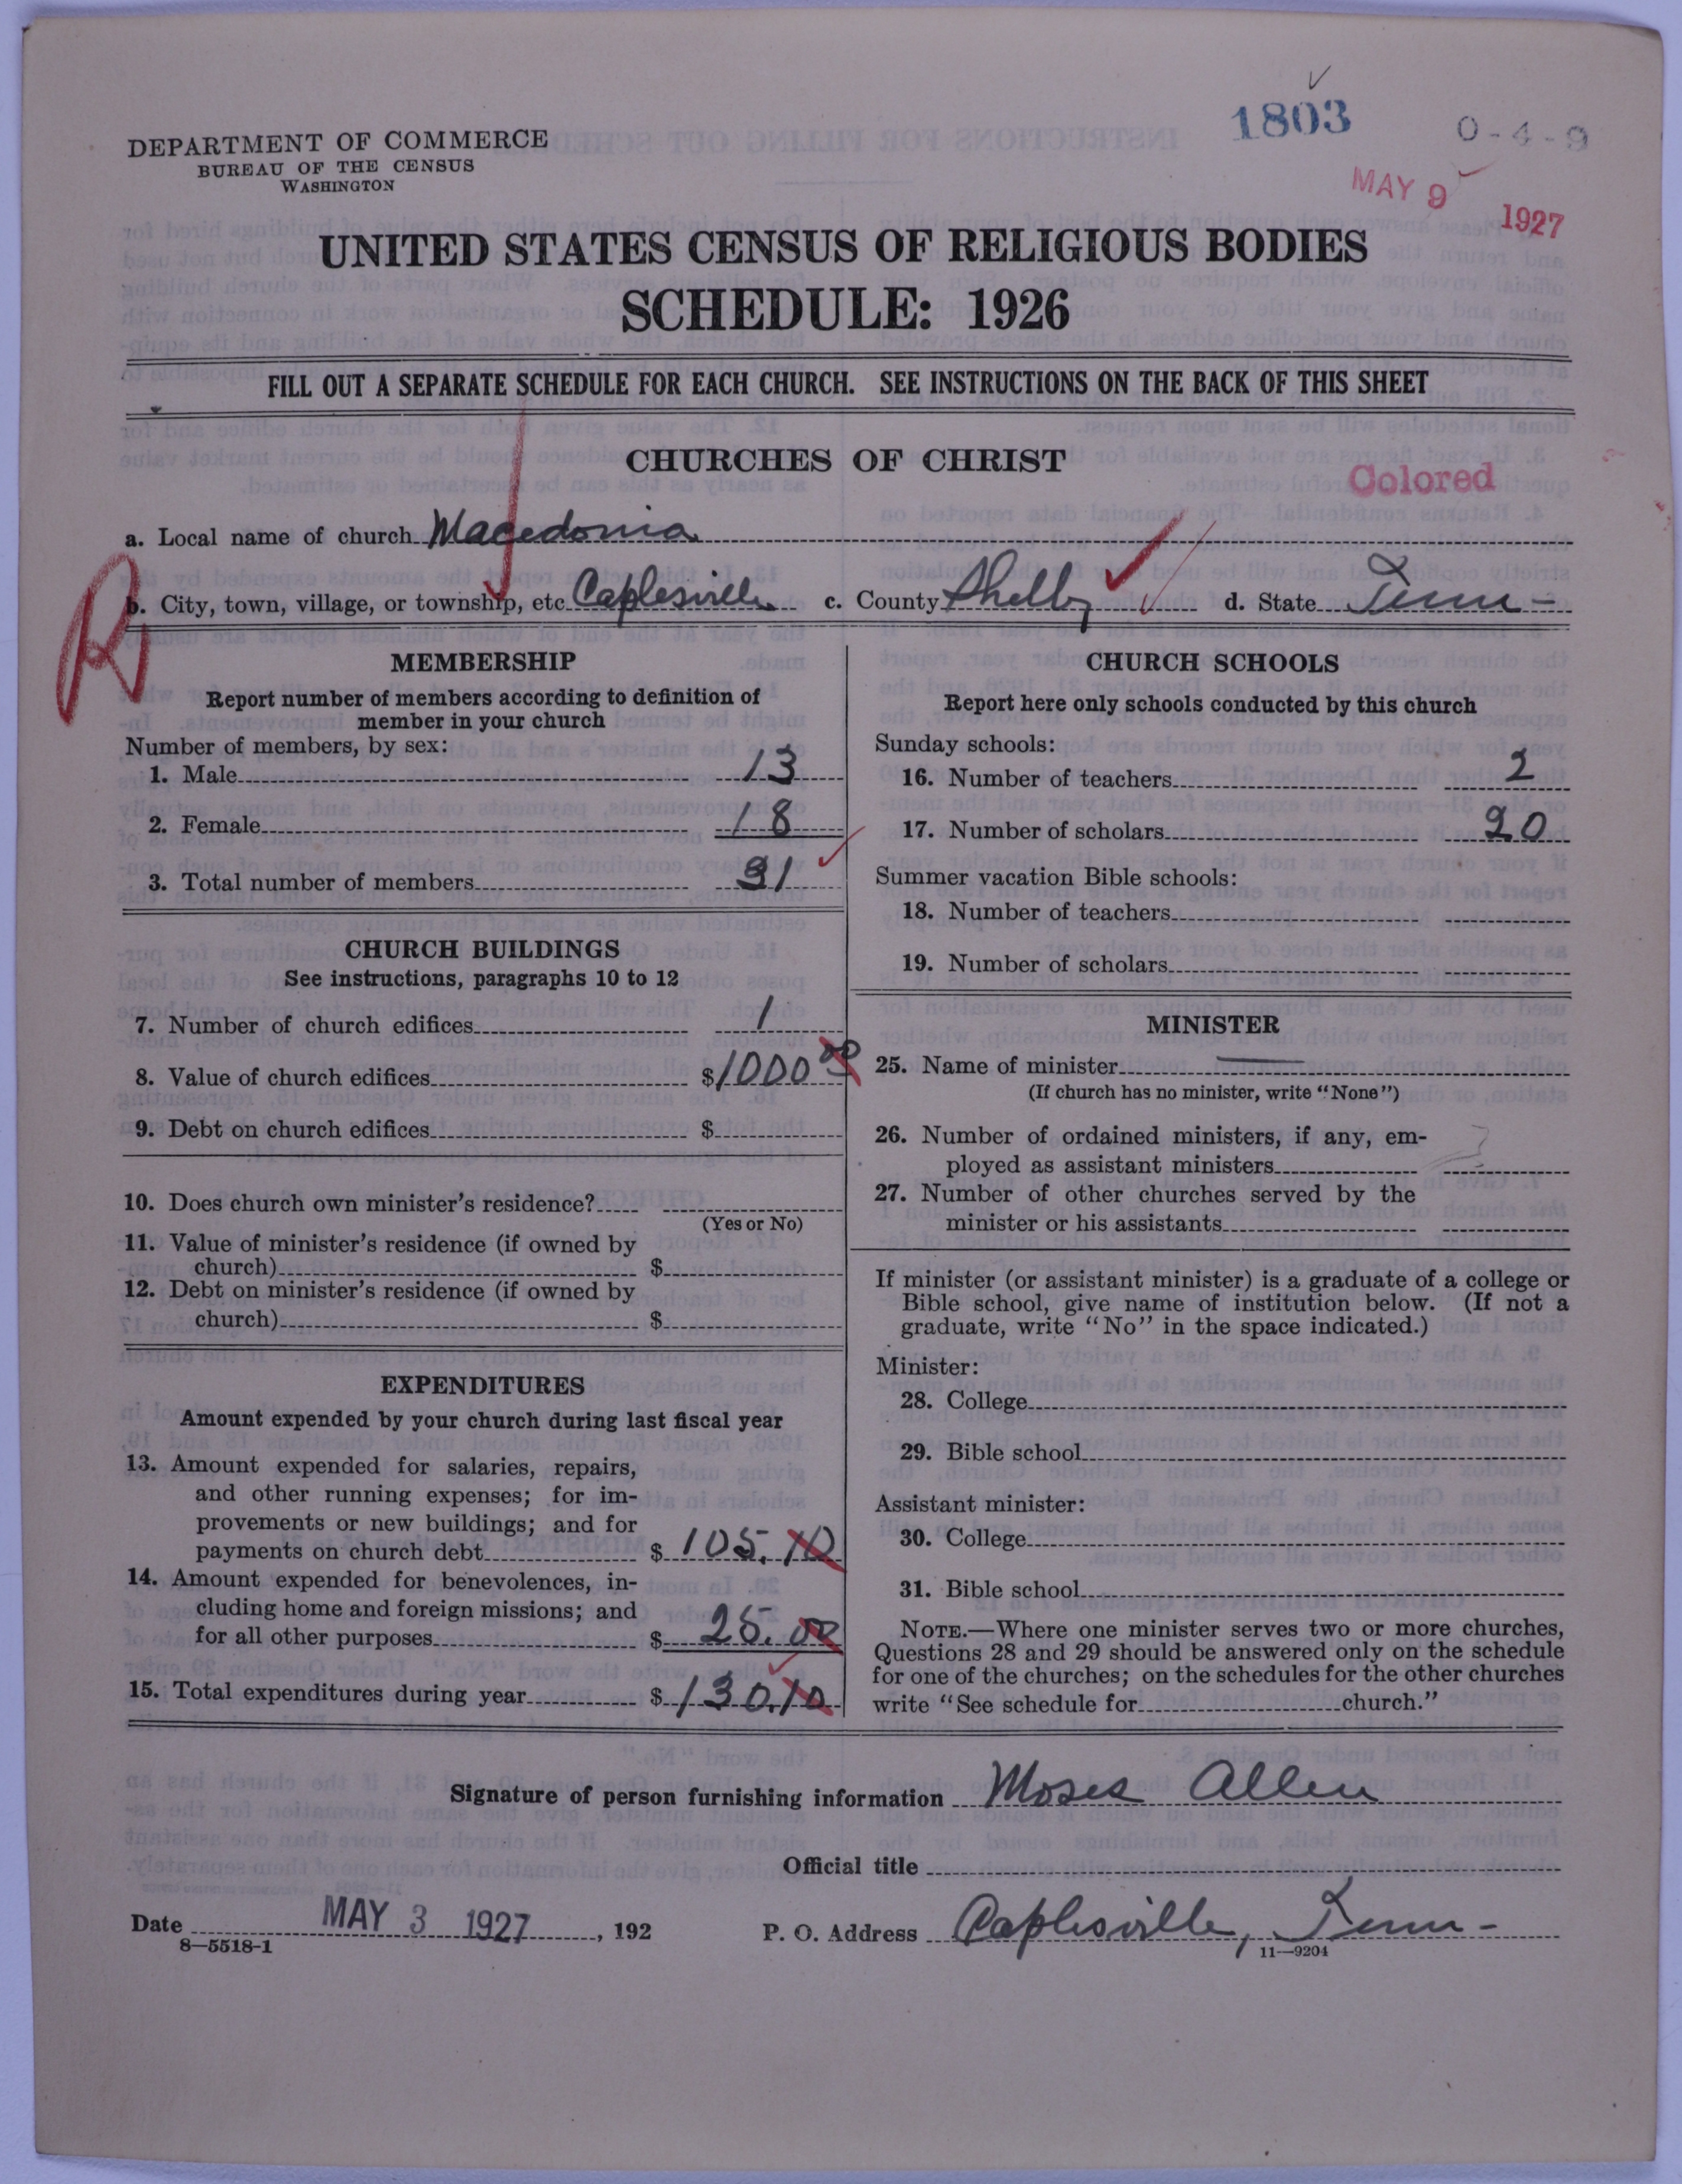 1803
0-4-9
MAY 9 1927
DEPARTMENT OF COMMERCE
BUREAU OF THE CENSUS
WASHINGTON
UNITED STATES CENSUS OF RELIGIOUS BODIES
SCHEDULE: 1926
FILL OUT A SEPARATE SCHEDULE FOR EACH CHURCH. SEE INSTRUCTIONS ON THE BACK OF THIS SHEET
CHURCHES OF CHRIST
Colored
a. Local name of church Macedonia
b. City, town, village, or township, etc. Caplesville c. County Shelby d. State Tenn-
R
MEMBERSHIP
Report number of members according to definition of
member in your church
Number of members, by sex:
1. Male 13
2. Female 18
3. Total number of members 31
CHURCH BUILDINGS
See instructions, paragraphs 10 to 12
7. Number of church edifices 1
8. Value of church edifices $1000 00
9. Debt on church edifices $
10. Does church own minister's residence?
(Yes or No)
11. Value of minister's residence (if owned by
church) $
12. Debt on minister's residence (if owned by
church) $
EXPENDITURES
Amount expended by your church during last fiscal year
13. Amount expended for salaries, repairs,
and other running expenses; for im-
provements or new buildings; and for
payments on church debt $ 105.10
14. Amount expended for benevolences, in-
cluding home and foreign missions; and
for all other purposes $ 25.00
15. Total expenditures during year $130.10
CHURCH SCHOOLS
Report here only schools conducted by this church
Sunday schools:
16. Number of teachers 2
17. Number of scholars 20
Summer vacation Bible schools:
18. Number of teachers
19. Number of scholars
MINISTER
25. Name of minister
(If church has no minister, write "None")
26. Number of ordained ministers, if any, em-
ployed as assistant ministers
27. Number of other churches served by the
minister or his assistants
If minister (or assistant minister) is a graduate of a college or
Bible school, give name of institution below. (If not a
graduate, write "No" in the space indicated.)
Minister:
28. College
29. Bible school
Assistant minister:
30. College
31. Bible school
NOTE.—Where one minister serves two or more churches,
Questions 28 and 29 should be answered only on the schedule
for one of the churches; on the schedules for the other churches
write "See schedule for church."
Signature of person furnishing information Moses Allen
Official title
Date MAY 3 1927, 192 P. O. Address Caplesville, Tenn-
8—5518-1
11—9204